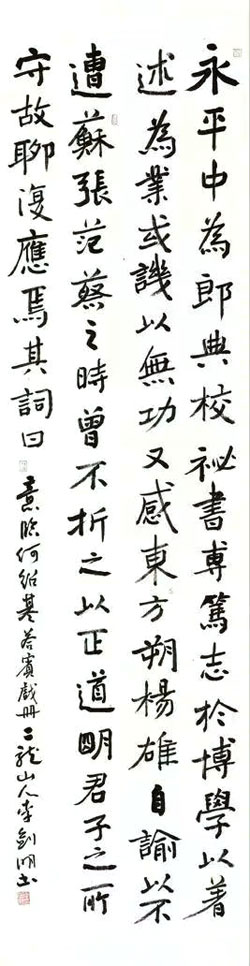 永平中為郎典校祕書專篤志於博學以著
述為業或譏以無功又感東方朔楊雄自諭以不
遭蘇張范蔡之時曾不折之以正道明君子之所
守故聊復應焉其詞曰
意臨何紹基荅賓戲冊二龍山人李劍明書